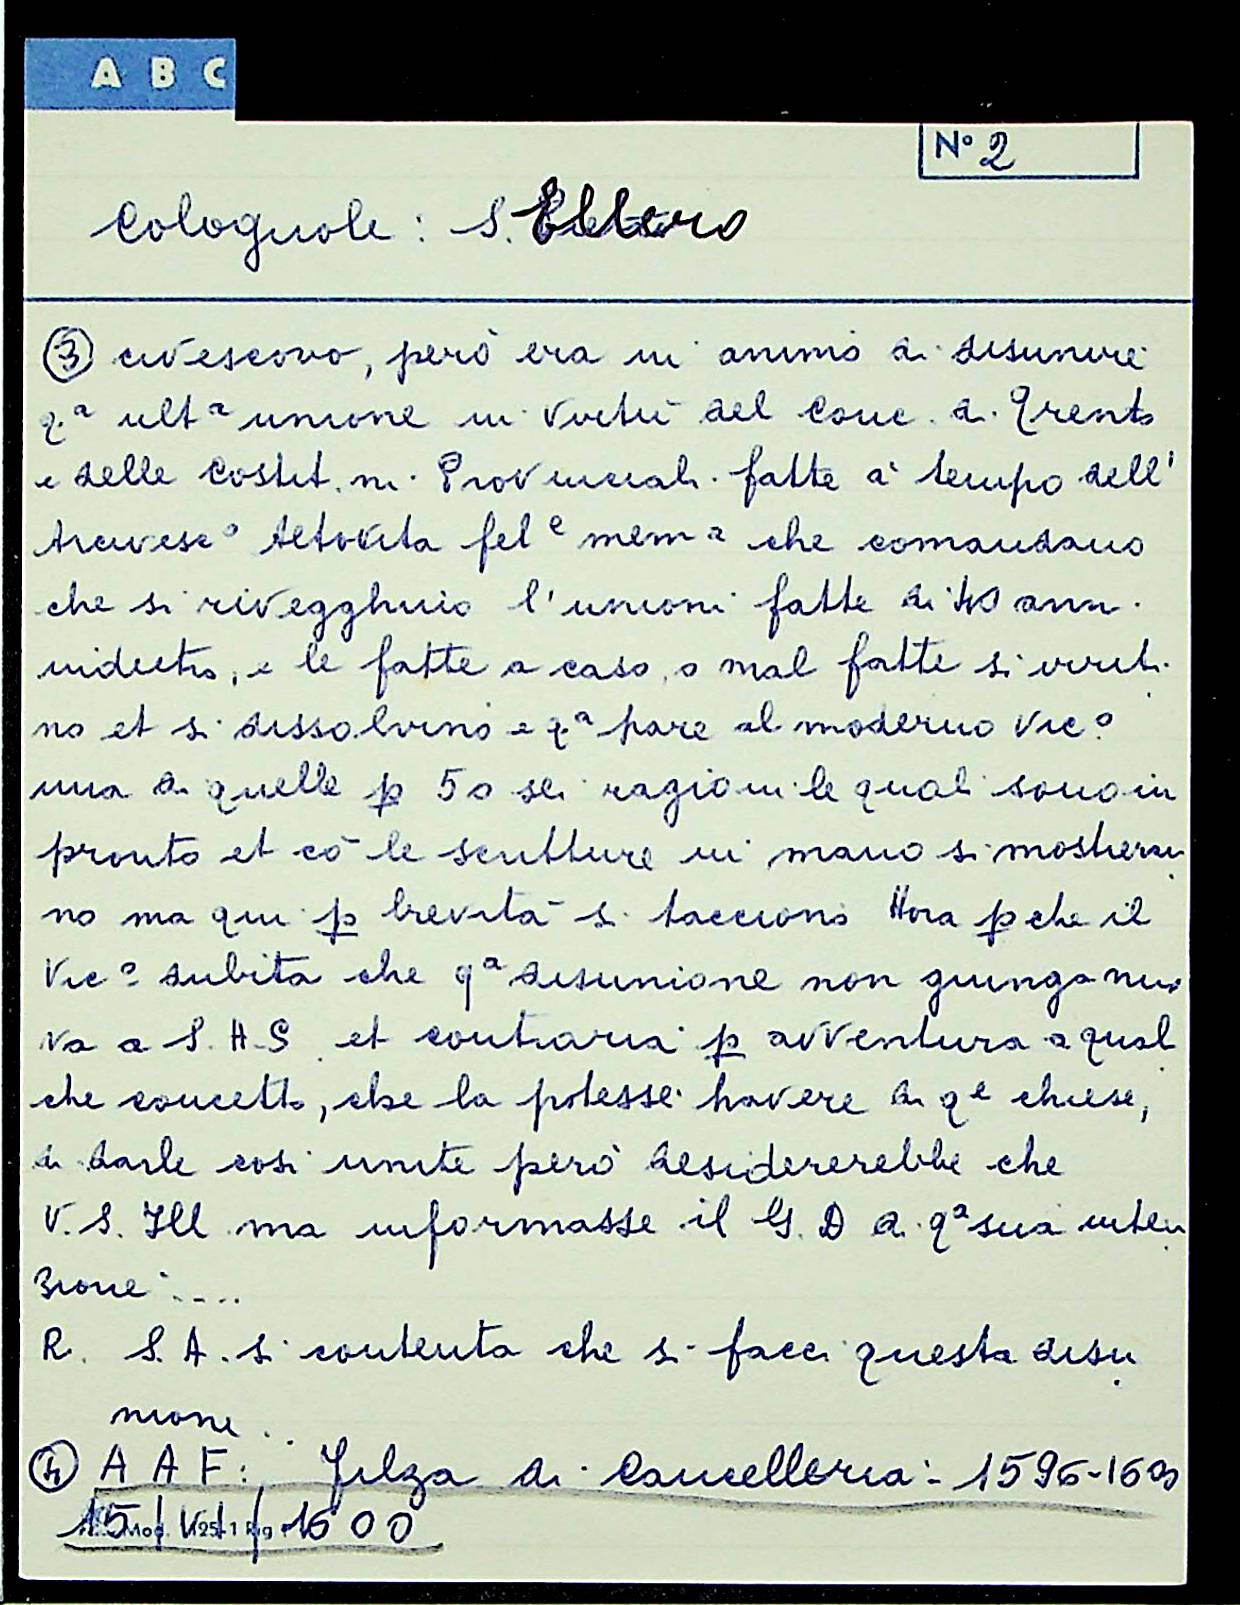 A B C
N° 2
Cologuole: S. Ellero
③ civescovo, però era in animo di disunire
q.a ult.a unione in virtù del Conc. di Trento
e delle Costit.ni Provinciali fatte a tempo dell'
Arcivesc° Altovita fel e mem a che comandano
che si rivegghino l'unioni fatte di 40 anni
indietro, e le fatte a caso, o mal fatte si
no et si dissolvino e q.a pare al moderno Vic.°
una di quelle p 50 sei ragioni le quali sono in
pronto et cō le scritture in mano si mostreran
no ma qui p brevità si tacciono Hora p che il
Vic° dubita che q a disunione non giunga nuo
va a S.A.S et contraria p avventura a qual
che concetto, che la potesse havere di q e chiese,
di darle così unite però desidererebbe che
V.S. Ill ma informasse il G.D di q a sua inten
zione....
R. S.A. si contenta che si facci questa disu
nione.
④ A A F: Filza di Cancelleria: 1596-1603
15/VI/1600